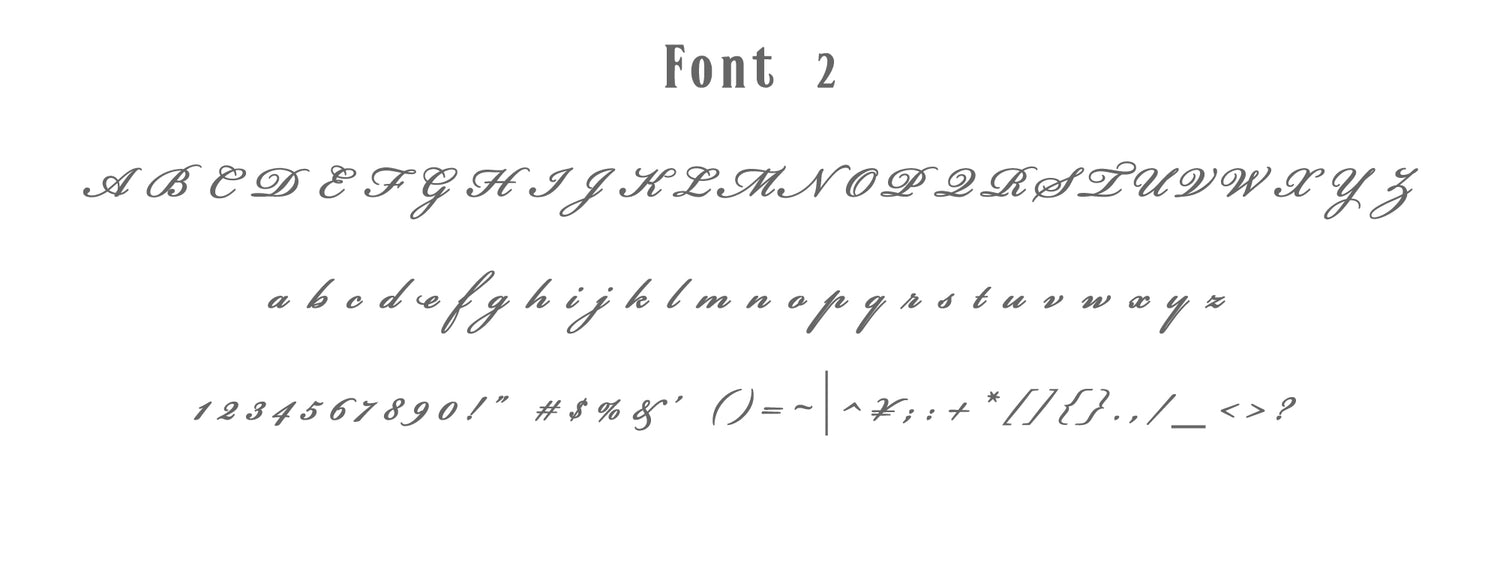 Font 2
A B C D E F G H I J K L M N O P Q R S T U V W X Y Z
a b c d e f g h i j k l m n o p q r s t u v w x y z
1 2 3 4 5 6 7 8 9 0 ! " # $ % & ' ( ) = ~ | ^ ¥ ; : + * [ ] { } . , / _ < > ?